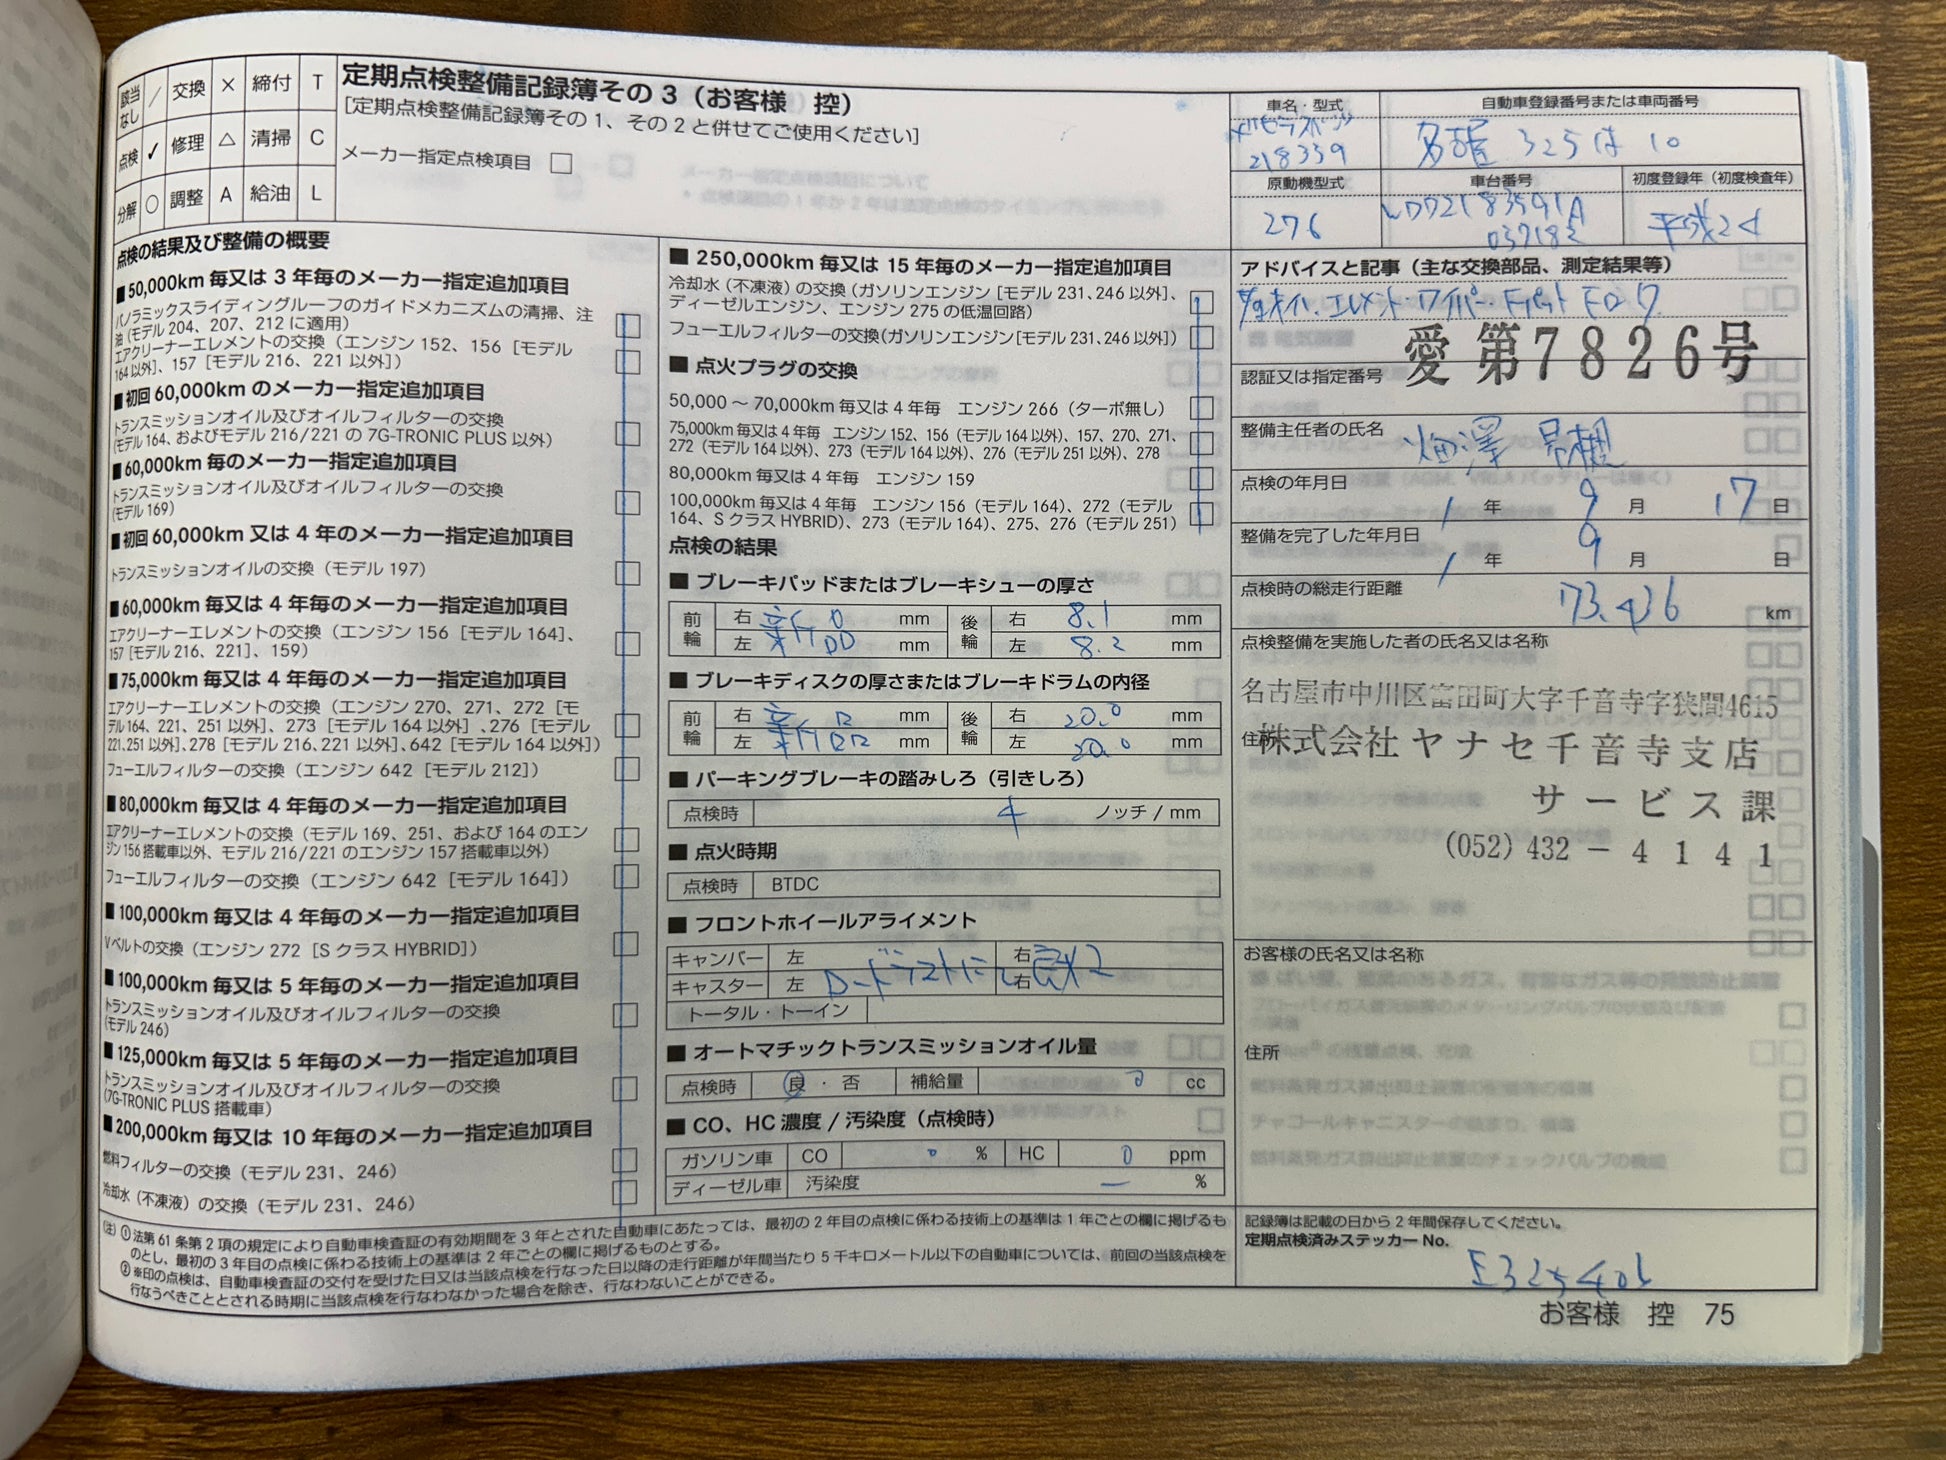 該当なし / 交換 × 締付 T
点検 ✓ 修理 △ 清掃 C
分解 ○ 調整 A 給油 L
定期点検整備記録簿その3（お客様　控）
［定期点検整備記録簿その1、その2と併せてご使用ください］
メーカー指定点検項目 □
点検の結果及び整備の概要
■50,000km 毎又は 3 年毎のメーカー指定追加項目
パノラミックスライディングルーフのガイドメカニズムの清掃、注
油（モデル 204、207、212 に適用）
エアクリーナーエレメントの交換（エンジン 152、156［モデル
164以外］、157［モデル 216、221 以外］）
■初回 60,000km のメーカー指定追加項目
トランスミッションオイル及びオイルフィルターの交換
（モデル 164、およびモデル 216/221 の 7G-TRONIC PLUS 以外）
■60,000km 毎のメーカー指定追加項目
トランスミッションオイル及びオイルフィルターの交換
（モデル 169）
■初回 60,000km 又は 4 年毎のメーカー指定追加項目
トランスミッションオイルの交換（モデル 197）
■60,000km 毎又は 4 年毎のメーカー指定追加項目
エアクリーナーエレメントの交換（エンジン 156［モデル 164］、
157［モデル 216、221］、159）
■75,000km 毎又は 4 年毎のメーカー指定追加項目
エアクリーナーエレメントの交換（エンジン 270、271、272［モ
デル 164、221、251 以外］、273［モデル 164 以外］、276［モデル
221、251 以外］、278［モデル 216、221 以外］、642［モデル 164 以外］）
フューエルフィルターの交換（エンジン 642［モデル 212］）
■80,000km 毎又は 4 年毎のメーカー指定追加項目
エアクリーナーエレメントの交換（モデル 169、251、および 164 のエン
ジン 156 搭載車以外、モデル 216/221 のエンジン 157 搭載車以外）
フューエルフィルターの交換（エンジン 642［モデル 164］）
■100,000km 毎又は 4 年毎のメーカー指定追加項目
Vベルトの交換（エンジン 272［S クラス HYBRID］）
■100,000km 毎又は 5 年毎のメーカー指定追加項目
トランスミッションオイル及びオイルフィルターの交換
（モデル 246）
■125,000km 毎又は 5 年毎のメーカー指定追加項目
トランスミッションオイル及びオイルフィルターの交換
（7G-TRONIC PLUS 搭載車）
■200,000km 毎又は 10 年毎のメーカー指定追加項目
燃料フィルターの交換（モデル 231、246）
冷却水（不凍液）の交換（モデル 231、246）
■ 250,000km 毎又は 15 年毎のメーカー指定追加項目
冷却水（不凍液）の交換（ガソリンエンジン［モデル 231、246 以外］、
ディーゼルエンジン、エンジン 275 の低温回路）
フューエルフィルターの交換（ガソリンエンジン［モデル 231、246 以外］）
■ 点火プラグの交換
50,000 〜 70,000km 毎又は 4 年毎　エンジン 266（ターボ無し）
75,000km 毎又は 4 年毎　エンジン 152、156（モデル 164 以外）、157、270、271、
272（モデル 164 以外）、273（モデル 164 以外）、276（モデル 251 以外）、278
80,000km 毎又は 4 年毎　エンジン 159
100,000km 毎又は 4 年毎　エンジン 156（モデル 164）、272（モデル
164、S クラス HYBRID）、273（モデル 164）、275、276（モデル 251）
点検の結果
■ ブレーキパッドまたはブレーキシューの厚さ
前輪 右 新 mm 後輪 右 8.1 mm
左 新 mm 左 8.2 mm
■ ブレーキディスクの厚さまたはブレーキドラムの内径
前輪 右 新 mm 後輪 右 20.0 mm
左 新 mm 左 20.0 mm
■ パーキングブレーキの踏みしろ（引きしろ）
点検時 4 ノッチ / mm
■ 点火時期
点検時 BTDC
■ フロントホイールアライメント
キャンバー 左 右
キャスター 左 ロードテストにて 右
トータル・トーイン
■ オートマチックトランスミッションオイル量
点検時 良・否 補給量 0 cc
■ CO、HC 濃度 / 汚染度（点検時）
ガソリン車 CO 0 % HC 0 ppm
ディーゼル車 汚染度 ー %
（注）①法第 61 条第 2 項の規定により自動車検査証の有効期間を 3 年とされた自動車にあたっては、最初の 2 年目の点検に係わる技術上の基準は 1 年ごとの欄に掲げるも
のとし、最初の 3 年目の点検に係わる技術上の基準は 2 年ごとの欄に掲げるものとする。
②※印の点検は、自動車検査証の交付を受けた日又は当該点検を行なった日以降の走行距離が年間当たり 5 千キロメートル以下の自動車については、前回の当該点検を
行なうべきこととされる時期に当該点検を行なわなかった場合を除き、行なわないことができる。
車名・型式
218359
自動車登録番号または車両番号
名古屋 325 は 10
原動機型式
276
車台番号
WDD2183591A
037182
初度登録年（初度検査年）
平成24
アドバイスと記事（主な交換部品、測定結果等）
オイル、エレメント・ワイパー・Fパット Fロータ
認証又は指定番号
愛 第7826号
整備主任者の氏名
点検の年月日
1 年 9 月 17 日
整備を完了した年月日
1 年 9 月 日
点検時の総走行距離
73,436 km
点検整備を実施した者の氏名又は名称
名古屋市中川区富田町大字千音寺字狭間4615
住所
株式会社ヤナセ千音寺支店
サービス課
(052) 432 − 4141
お客様の氏名又は名称
住所
記録簿は記載の日から 2 年間保存してください。
定期点検済みステッカー No.
お客様　控　75